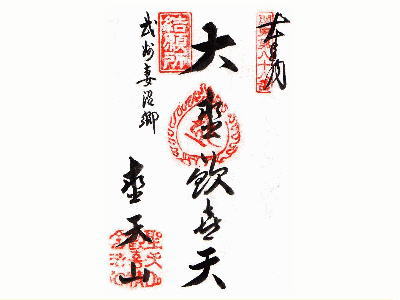 大聖歓喜天
結願所
武州妻沼郷
聖天山